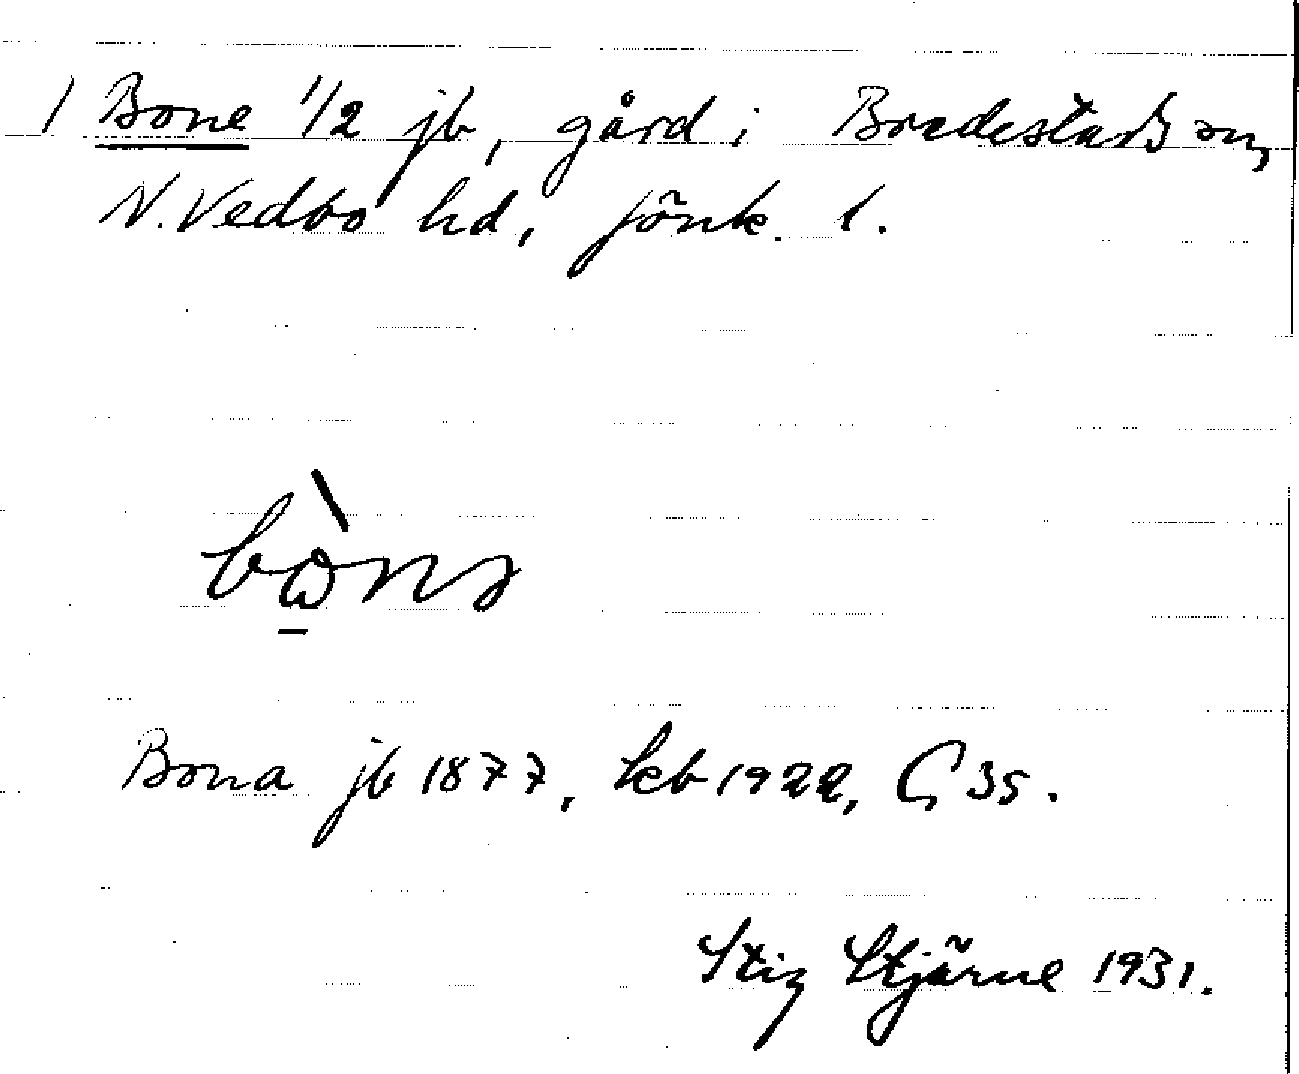 1 Bone 1/2 jb, gård i Bredestads sn,
N. Vedbo hd, Jönk. l.
Bona jb 1877, kb 1922, G 35.
Stig Stjärne 1931.